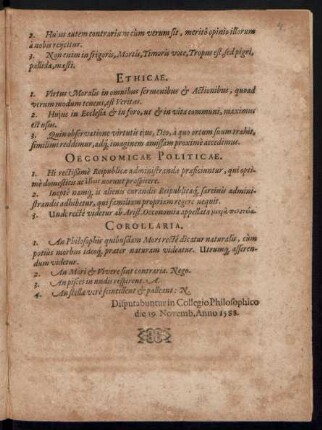 2. Hujus autem contrarium cùm verum sit, meritò opinio illorum
à nobis rejicitur.
3. Non enim in frigoris, Mortis, Timoris voce, Tropus est, sed pigri,
pallida, mæsti.
ETHICAE.
1. Virtus Moralis in omnibus sermonibus & Actionibus, quoad
verum modum tenens, est Veritas.
2. Hujus in Ecclesia & in foro, ut & in vita communi, maximus
est usus.
3. Quin observatione virtutis ejus, Deo, à quo ortum suum trahit,
similimi reddimur, adq; imaginem amissam proximè accedimus.
OECONOMICAE POLITICAE.
1. Hi rectissimè Reipublicæ administrandæ præficiuntur, qui apti-
mè domesticis ac suis norunt prospicere.
2. Inepte namq; is alienis curandis Reipublicæq; sarcinis admini-
strandis adhibetur, qui familiam propriam regere nequit.
3. Unde recte videtur ab Arist. Oeconomia appellata
COROLLARIA.
1. An Philosophis quibusdam Mors rectè dicatur naturalis, cùm
potius morbus idemq; præter naturam videatur. Utrumq; asseren-
dum videtur.
2. An Mori & Vivere sint contraria. Nego.
3. An pisces in undis respirent. A.
4. An stellæ verè scintillent & palleant: N.
Disputabuntur in Collegio Philosophico
die 19. Novemb. Anno 1588.